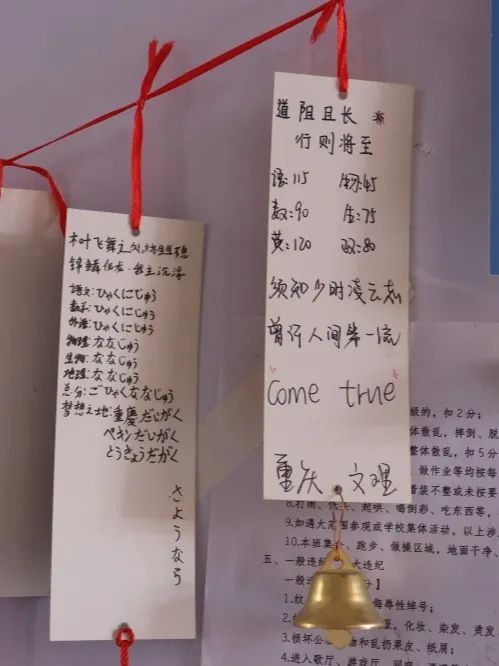 木叶飞舞之处火亦生生不息
锦鳞化龙·我主沉浮
语文:ひゃくにじゅう
数学:ひゃくにじゅう
外语:ひゃくにじゅう
物理:ななじゅう
生物:ななじゅう
地理:ななじゅう
总分:ごひゃくななじゅう
梦想之地:重慶だいがく
ペキンだいがく
とうきょうだがく
さようなら
道阻且长
行则将至
语:115 物:45
数:90 生:75
英:120 政:80
须知少时凌云志
曾许人间第一流
"Come true"
重庆 文理
级的,扣2分;
体散乱,摔倒、脱
整体散乱,扣5分
、做作业等均按每
着装不整或未按要
、起哄、喝倒彩、吃东西等,
9.如遇大范围参观或学校集体活动,以上涉
10.本班集 、跑步、做操区域,地面干净、
五、一般违纪 大违纪
一般违 分】
1.纹 侮辱性绰号;
2. ,化妆、染发、烫发
3.损坏公 物和乱扔果皮、纸屑;
4.进入歌厅、游戏厅